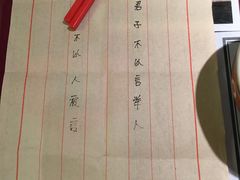 君子不以言举人
不以人废言